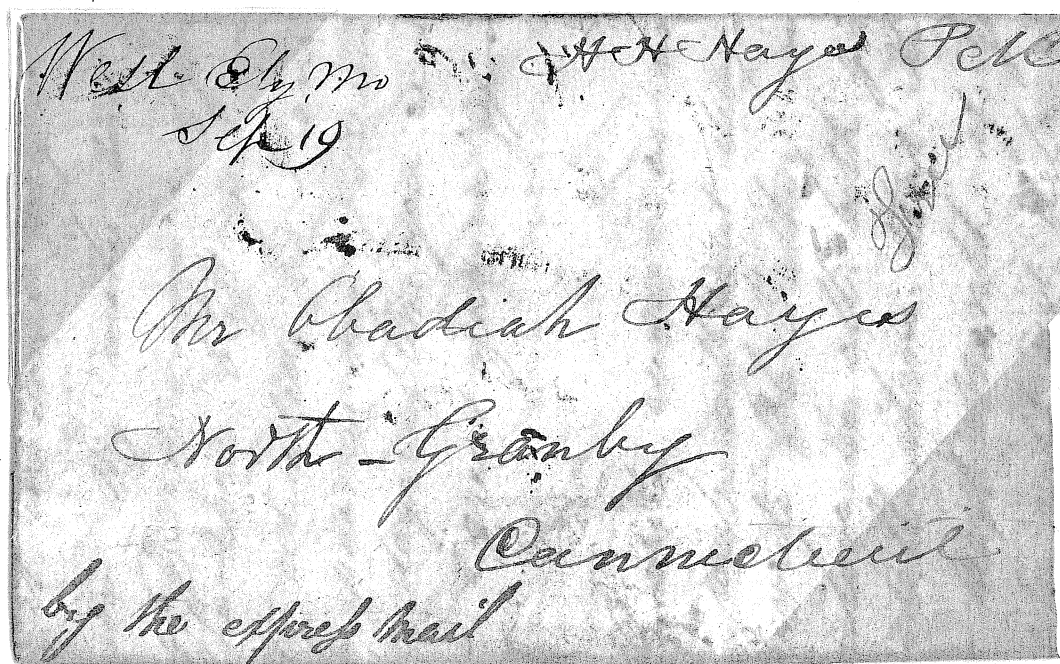 West Ely Mo
Sep 19
H H Hays P M
Free
Mr Obadiah Hays
North - Granby
Connecticut
by the express mail